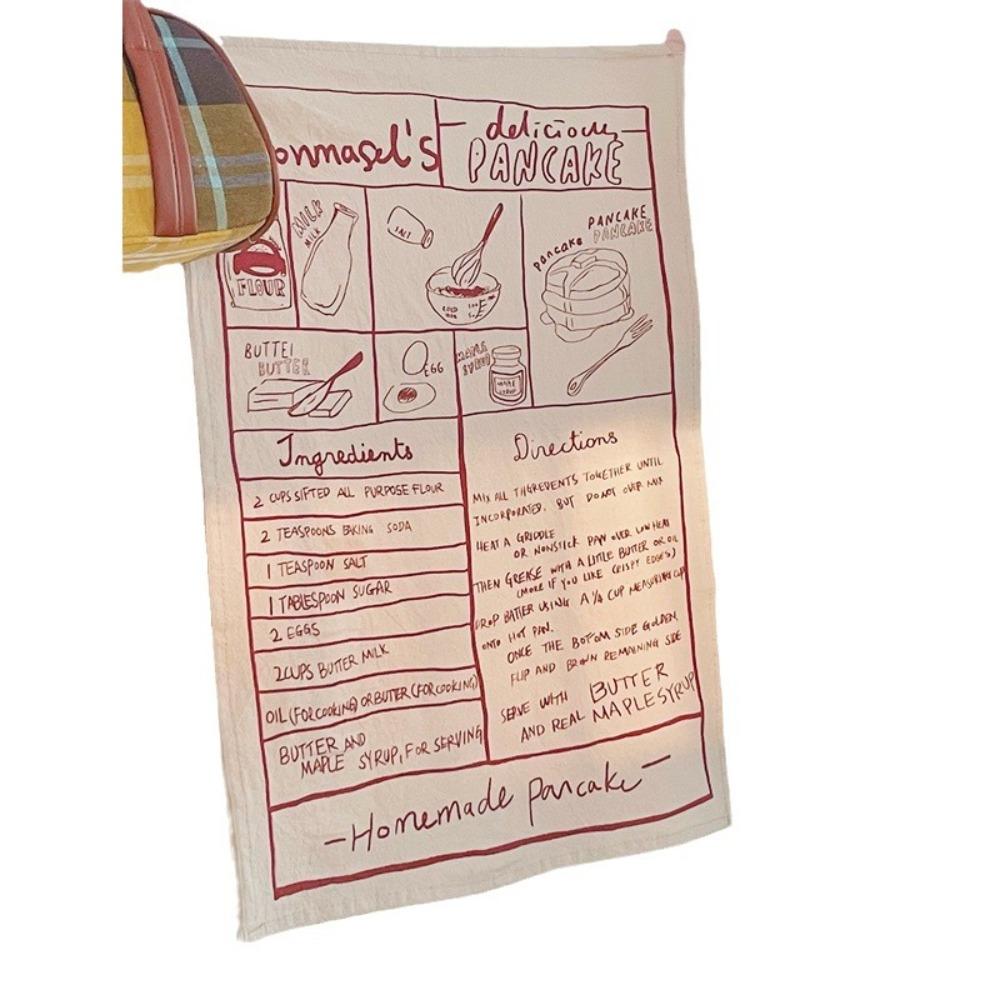 onmasel's
delicious
PANCAKE
FLOUR
MILK
MILK
SALT
PANCAKE
PANCAKE
Pancake
BUTTEI
BUTTER
EGG
MAPLE
SYRUP
MAPLE
SYRUP
Ingredients
2 CUPS SIFTED ALL PURPOSE FLOUR
2 TEASPOONS BAKING SODA
1 TEASPOON SALT
1 TABLESPOON SUGAR
2 EGGS
2 CUPS BUTTER MILK
OIL (FOR COOKING) OR BUTTER (FOR COOKING)
BUTTER AND
MAPLE SYRUP, FOR SERVING
Directions
MIX ALL THGREDENTS TOGETHER UNTIL
INCORPORATED. BUT DO NOT OVER MIX
HEAT A GRIDDLE
OR NONSTICK PAN OVER LOW HEAT
THEN GREASE WITH A LITTLE BUTTER OR OIL
(MORE IF YOU LIKE CRISPY EDGES)
DROP BATTER USING A 1/4 CUP MEASURING CUP
ONTO HOT PAN.
ONCE THE BOTTOM SIDE GOLDEN,
FLIP AND BROWN REMAINING SIDE
SERVE WITH BUTTER
AND REAL MAPLE SYRUP
-Homemade pancake-